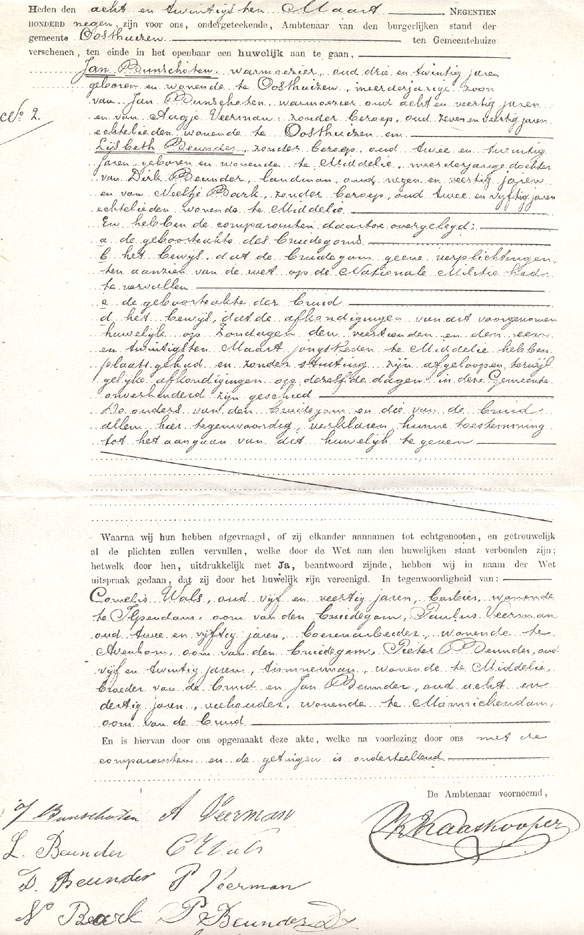 Heden den acht en twintigsten Maart NEGENTIEN
HONDERD negen, zijn voor ons, ondergeteekende, Ambtenaar van den burgerlijken stand der
gemeente Oosthuizen ten Gemeentehuize
verschenen, ten einde in het openbaar een huwelijk aan te gaan,
Jan Bunschoten, warmoezier, oud drie en twintig jaren
geboren en wonende te Oosthuizen, meerderjarige zoon
No 2. van Jan Bunschoten, warmoezier, oud acht en veertig jaren
en van Aagje Veerman zonder beroep, oud zeven en veertig jaren
echtelieden wonende te Oosthuizen en
Lijsbeth Beunder, zonder beroep, oud twee en twintig
jaren, geboren en wonende te Middelie, meerderjarige dochter
van Dirk Beunder, landman, oud negen en veertig jaren
en van Neeltje Bark, zonder beroep, oud twee en vijftig jaren
echtelieden wonende te Middelie
En hebben de comparanten daartoe overgelegd:
a. de geboorteakte des bruidegoms
b. het bewijs dat de bruidegom geene verplichtingen
ten aanzien van de wet op de Nationale Militie had
te vervullen
c. de geboorteakte der bruid
d. het bewijs, dat de afkondigingen van dit voorgenomen
huwelijk op Zondagen den veertienden en den een
en twintigsten Maart jongstleden te Middelie hebben
plaats gehad en zonder stuiting zijn afgeloopen, terwijl
gelijke afkondigingen op dezelfde dagen in deze Gemeente
onverhinderd zijn geschied
De ouders van den bruidegom en die van de bruid
allen hier tegenwoordig, verklaren hunne toestemming
tot het aangaan van dit huwelijk te geven
Waarna wij hun hebben afgevraagd, of zij elkander aannamen tot echtgenooten, en getrouwelijk
al de plichten zullen vervullen, welke door de Wet aan den huwelijken staat verbonden zijn;
hetwelk door hen, uitdrukkelijk met Ja, beantwoord zijnde, hebben wij in naam der Wet
uitspraak gedaan, dat zij door het huwelijk zijn vereenigd. In tegenwoordigheid van:
Cornelis Wals, oud vijf en veertig jaren, barbier, wonende
te Ilpendam, oom van den bruidegom, Paulus Veerman
oud twee en vijftig jaren, boerenarbeider, wonende te
Avenhorn, oom van den bruidegom, Pieter Beunder, oud
vijf en twintig jaren, timmerman, wonende te Middelie,
broeder van de bruid en Jan Beunder, oud acht en
dertig jaren, veehouder, wonende te Monnickendam,
oom van de bruid
En is hiervan door ons opgemaakt deze akte, welke na voorlezing door ons met de
comparanten en de getuigen is onderteekend
De Ambtenaar voornoemd,
J Bunschoten A Veerman
L. Beunder C Wals
D. Beunder P Veerman
N Bark P Beunder Dz